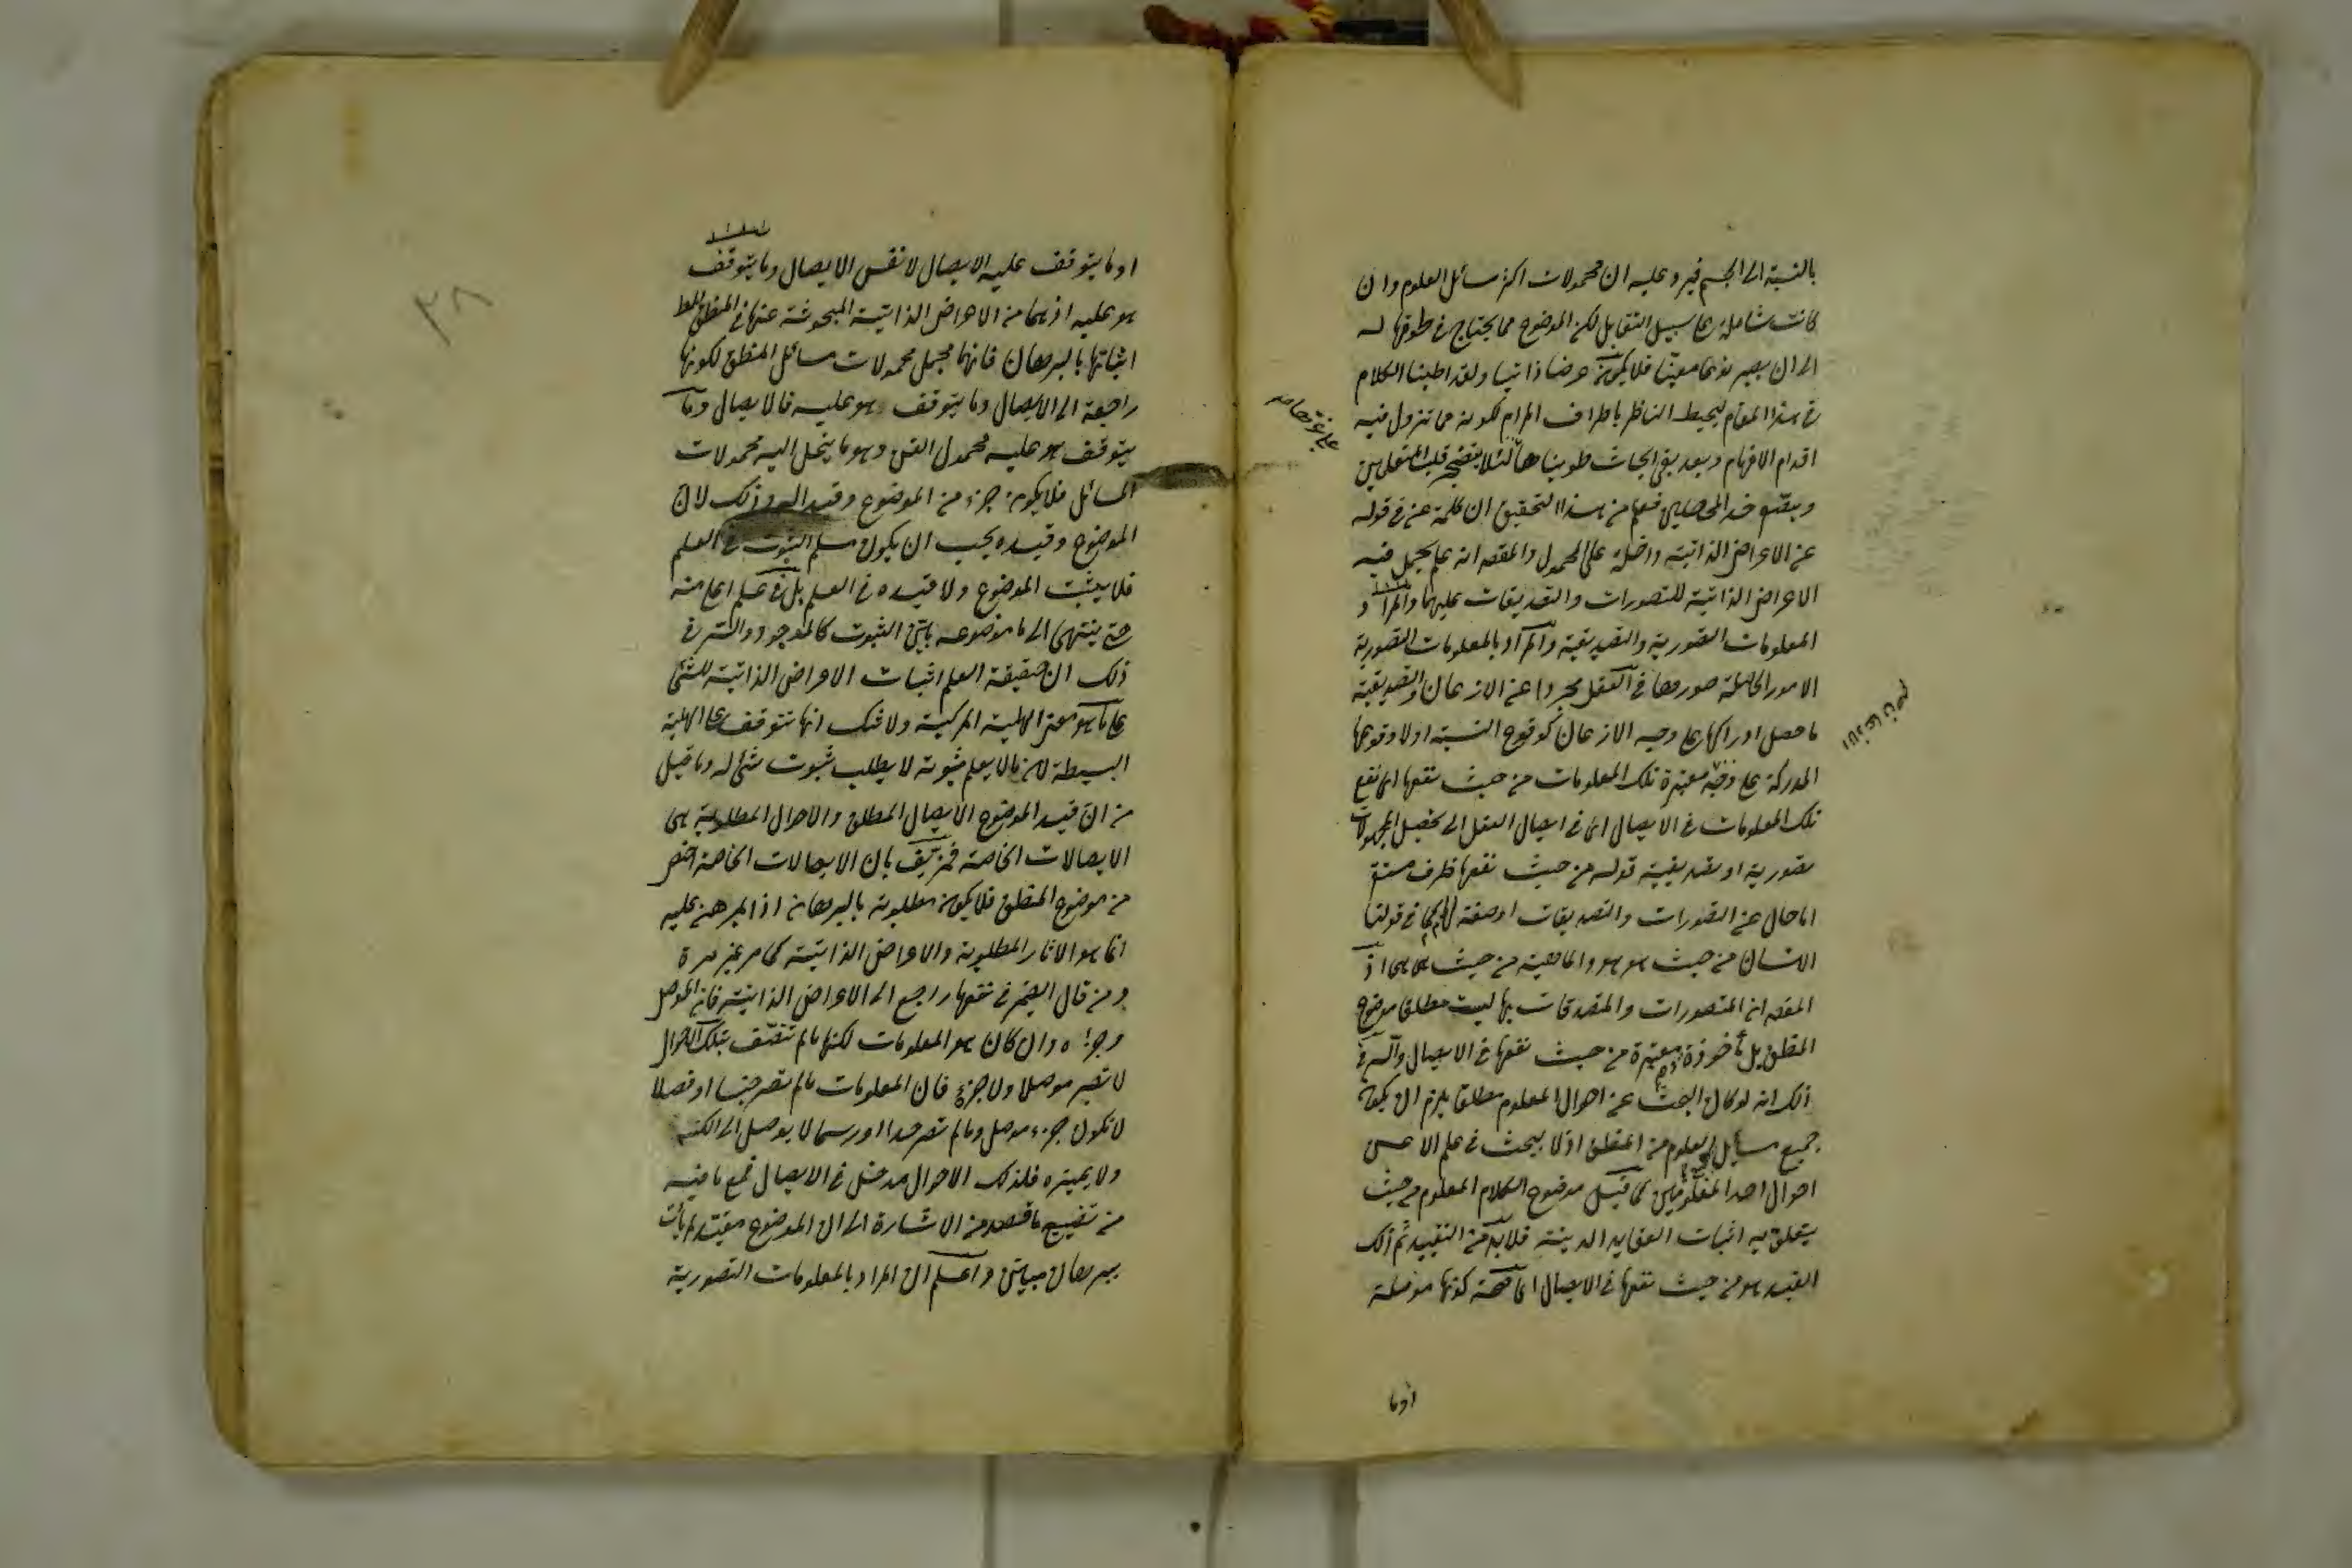 بالنسبة الى الجسم فيرد عليه ان محمولات اكثر مسائل العلوم وان
كانت شاملة على سبيل التقابل لكن الموضوع مما يحتاج في طروقها له
الى ان يصير نوعا معينا فلا يكون عرضا ذاتيا ولقد اطنبنا الكلام
في هذا المقام ليحيط الناظر باطراف المرام لكونه مما تزول فيه
اقدام الافهام وبعد بقي ابحاث طويناها لئلا
فعلم من هذا التحقيق ان كلمة عن في قوله
عن الاعراض الذاتية داخلة على المحمول والمقصد انه علم يحمل فيه
الاعراض الذاتية للتصورات والتصديقات عليها والمراد
المعلومات التصورية والتصديقية والمراد بالمعلومات التصورية
الامور الحاصلة صورها في العقل مجردا عن الاذعان والتصديقية
ما حصل ادراكها على وجه الاذعان كوقوع النسبة او لا وقوعها
المدركة على وجه معتبرة تلك المعلومات من حيث نفعها اي نفع
تلك المعلومات في الايصال اي في ايصال العقل الى تحصيل المجهولات
تصورية او تصديقية قوله من حيث نفعها ظرف مستقر
اما حال عن التصورات والتصديقات او صفة لهما كما في قولنا
الانسان من حيث هو هو والماهية من حيث هي هي اذ
المقصد ان المتصورات والمتصدقات بها ليست مطلقا موضوع
المنطق بل مأخوذة معتبرة من حيث نفعها في الايصال والسر في
ذلك انه لو كان البحث عن احوال المعلوم مطلقا يلزم ان يكون
جميع مسائل العلوم من المنطق اذ لا يبحث في علم الا عن
احوال احد المعلومين كما قيل موضوع الكلام المعلوم من حيث
يتعلق به اثبات العقايد الدينية فلا بد من التقييد ثم ذلك
القيد هو من حيث نفعها في الايصال اي صحة كونها موصلة
الاذعان
اوما
٣٨
او ما يتوقف عليه الايصال لا نفس الايصال وما يتوقف
هو عليه اذ هما من الاعراض الذاتية المبحوثة عنها في المنطق
اثباتها بالبرهان فانهما مجمل محمولات مسائل المنطق لكونها
راجعة الى الايصال وما يتوقف هو عليه فالايصال وما
يتوقف هو عليه محمول الفن وهو ما ينحل اليه محمولات
المسائل فلا يكون جزء من الموضوع وقيد اليه وذلك لان
الموضوع وقيده يجب ان يكون مسلم الثبوت في العلم
فلا يثبت الموضوع ولا قيده في العلم بل في علم اعلى منه
حتى ينتهي الى ما موضوعه بين الثبوت كالموجود والسر في
ذلك ان حقيقة العلم اثبات الاعراض الذاتية للشئ
على ما هو معنى الهلية المركبة ولا شك انها تتوقف على الهلية
البسيطة لان ما لا يعلم ثبوته لا يطلب ثبوت شئ له وما قيل
من ان قيد الموضوع الايصال المطلق والاحوال المطلوبة هي
الايصالات الخاصة فمزيف بان الايصالات الخاصة اخص
من موضوع المنطق فلا يكون مطلوبة بالبرهان اذ المبرهن عليه
انما هو الاثار المطلوبة والاعراض الذاتية كما مر غير مرة
ومن قال الضمير في نفعها راجع الى الاعراض الذاتية فان الموصل
وجزءه وان كان هو المعلومات لكنها ما لم تتصف بتلك الاحوال
لا تصير موصلا ولا جزءه فان المعلومات ما لم تصر جنسا او فصلا
لا تكون جزء موصل وما لم تصر حدا او رسما لا يوصل الى الكنه
ولا يميزه فلذلك الاحوال مدخل في الايصال فمع ما فيه
من تضييع ما قصد من الاشارة الى ان الموضوع مقيد لم يأت
ببرهان مبين واعلم ان المراد بالمعلومات التصورية